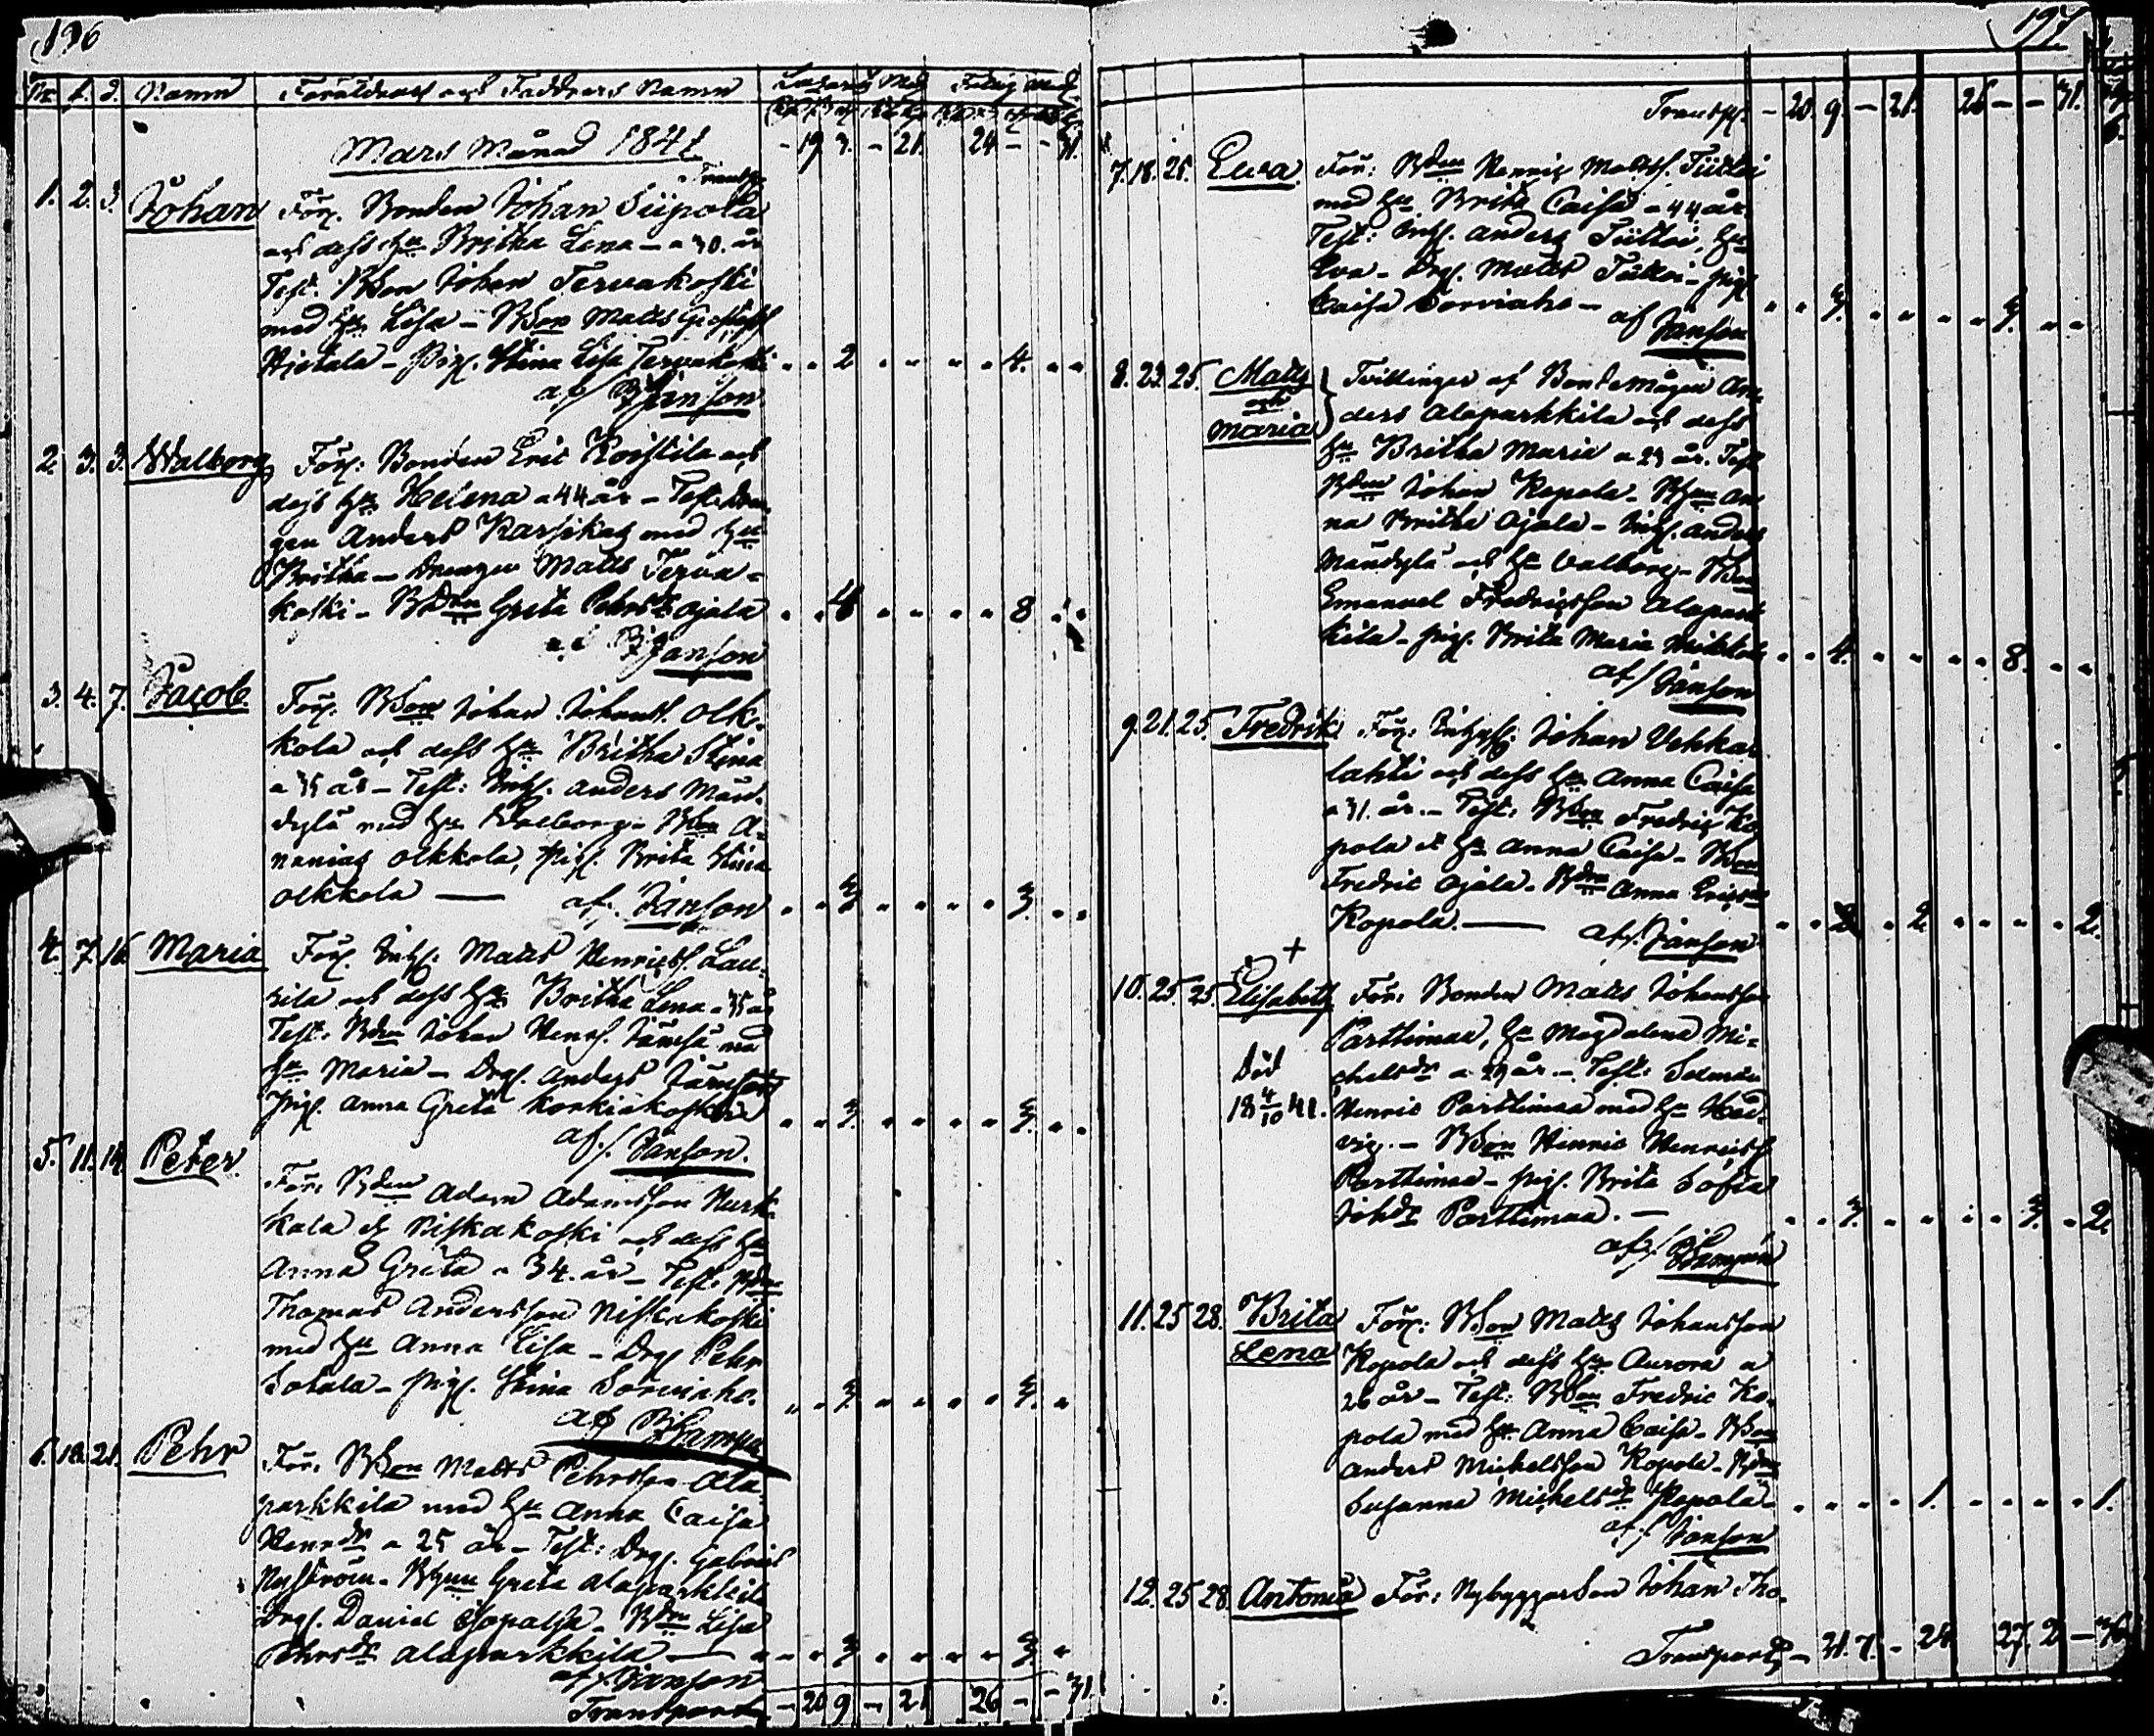 196
No f. d. Namn Föräldrars och Faddrars Namn
Mars Månad 1841
Transp.
- 19 3. - 21. 24 - - 31.
1. 2. 3. Johan För. Bonden Johan Siipola
och dess hu Britha Lena - a 30. år
Test. Bdon Johan Tervakoski
med hu Lisa - Bdon Matts
Hietala - Pig. Stina Lisa Tervakoski " " 2 " " " " 4. " "
af Janson
2. 3. 3. Walborg För: Bonden Eric Koistila och
dess hu Helena a 44 år - Test. Drän-
gen Anders Karsikas med hu
Britha - Drengen Matts Terva-
koski - Bdan Greta Pehrsdr Ojala " " 4 " " " " 8 " "
Janson
3. 4. 7. Jacob För. Bdon Johan Johanss. Olk-
kola och dess hu Britha Stina
a 35 år - Test: Inhs. Anders Män-
dylä med hu Walborg - Bdon A-
nanias Olkkola, Pig. Brita Stina
Olkkola — af. Janson " " 3 " " " " 3. " "
4. 7. 16. Maria För. Inhs. Matts Henricss. Lau-
rila och dess hu Britha Lena a 35 år
Test. Bdon Johan Henrs. Jämsä med
hu Maria - Drg. Anders Jämsä
Pig. Anna Greta Korkiakoski " " 3. " " " " 3. " "
af. Janson.
5. 11. 14. Peter För. Bden Adam Adamsson Hurk-
kala et Niskakoski och dess hu
Anna Greta a 34. år - Test. Bdon
Thomas Andersson Niskakoski
med hu Anna Lisa - Drg. Pehr
Sotala - Pig. Stina Sorviaho. " " 3. " " " " 3. "
af
6. 18. 21. Pehr För. Bdon Matts Pehrsson Ala-
parkkila med hu Anna Caisa
Henrdr a 25 år - Test: Drg. Gabriel
Nyström - Greta Alaparkkila
Drg. Daniel - Bdon Lisa
Pehrsdr Alaparkkila — " " 3 " " " " 3 "
af. Janson
Transport - 20 9 - 21 26 - - 31
197.
Transp. - 20 9. - 21. 26 - - 31.
7. 18. 25. Ewa. För: Bdon Henric Matts. Tiittoi
med hu Brita Caisa a 44 år
Test: Inhs. Anders Tiittoi, hu
Eva - Drg. Matts Tiittoi - Pig.
Caisa Sorviaho - " " 3. " " " " 3. " "
af Janson
8. 22. 25. Matts
och
Maria } Tvillingar af Bondemågen An-
ders Alaparkkila och dess
hu Britha Maria a 23 år. Test
Bdon Johan Kopola - An-
na Britha Ojala - Inhs. Anders
Mändylä och hu Valborg - Bdon
Emanuel Fredricsson Alapark-
kila - Pig. Brita Maria " " 4. " " " " 8. " "
af. Janson
9. 21. 25. Fredrik För: Inhys. Johan Vehka-
lahti och dess hu Anna Caisa
a 31. år. - Test: Bdon Fredric Ko-
pola et hu Anna Caisa - Bdon
Fredric Ojala - Bdra Anna Ericsdr
Kopola. — " " 2 " 2. " " " " 2.
af. Janson
+
10. 25. 25. Elisabeth För. Bonden Matts Johansson
Parttimaa, hu Magdalena Mi-
chelsdr a 29 år. - Test: Soldaten
Henric Parttimaa med hu Hed-
vig. - Bdon Henric Henricss
Parttimaa - Pig. Brita Sofia
Johdr Parttimaa. — " " 3. " " " " 3. " 2.
Död
18 4/10 41.
af.
11. 25 28. Brita
Lena För: Bdon Matts Johansson
Kopola och dess hu Aurora a
26 år - Test: Bdon Fredric Ko-
pola med hu Anna Caisa - Bdon
Anders Michelsson Kopola - Bdra
Susanna Michelsdr Kopola - " " " " 1. " " " " 1.
af. Janson
12. 25 28. Antonia För: Nybyggarson Johan Tho-
Transport - 21. 7. - 24. 27. 2 - 36